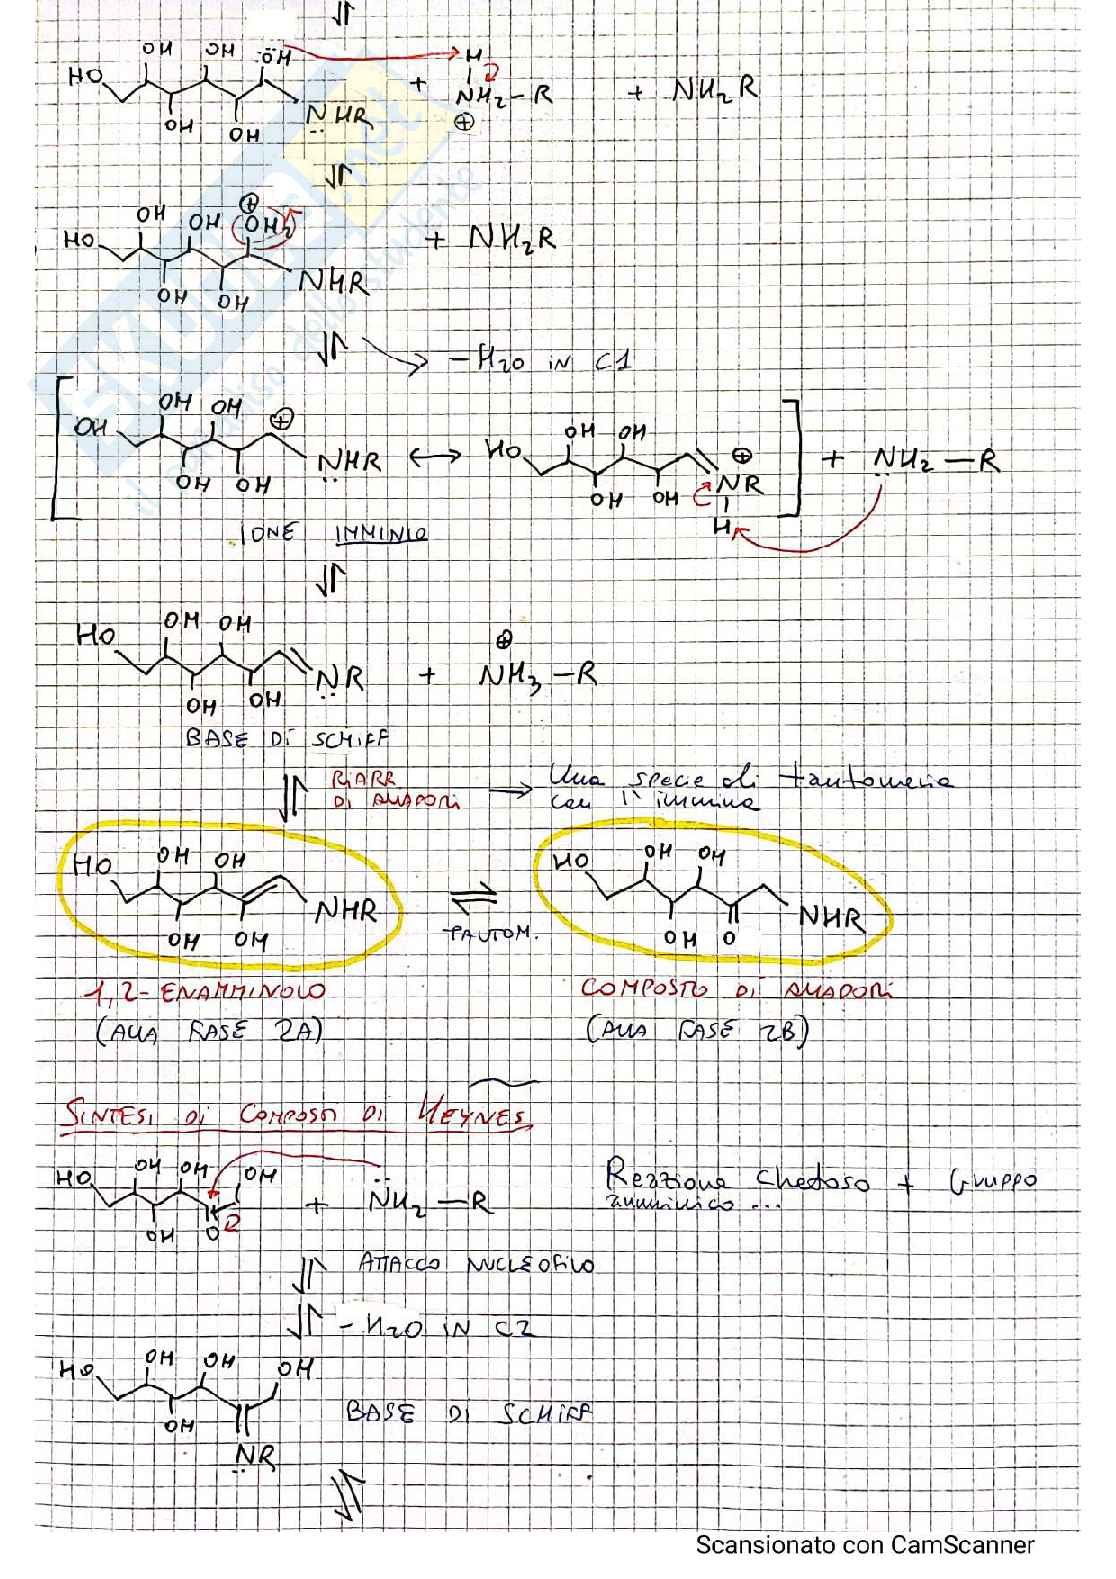 OH OH ÖH H
HO NH₂-R + NH₂R
⊕
OH OH N̤HR
+
⊕
OH OH OH₂
HO + NH₂R
OH OH NHR
-H₂O IN C1
OH OH ⊕ OH OH
OH N̤HR ↔ HO ⊕ NR + N̤H₂-R
OH OH OH OH H
IONE IMMINIO
OH OH
HO ⊕
N̤R + NH₃-R
OH OH
BASE DI SCHIFF
RIARR → Una specie di tautomeria
DI AMADORI con l'immina
HO OH OH HO OH OH
NHR NHR
OH OH TAUTOM. OH O
1,2-ENAMMINOLO COMPOSTO DI AMADORI
(ALLA FASE 2A) (ALLA FASE 2B)
SINTESI DI COMPOSTI DI HEYNES
HO OH OH OH Reazione Chetoso + Gruppo
+ N̈H₂-R amminico ...
OH O
ATTACCO NUCLEOFILO
-H₂O IN C2
HO OH OH OH
BASE DI SCHIFF
OH
N̤R
Scansionato con CamScanner